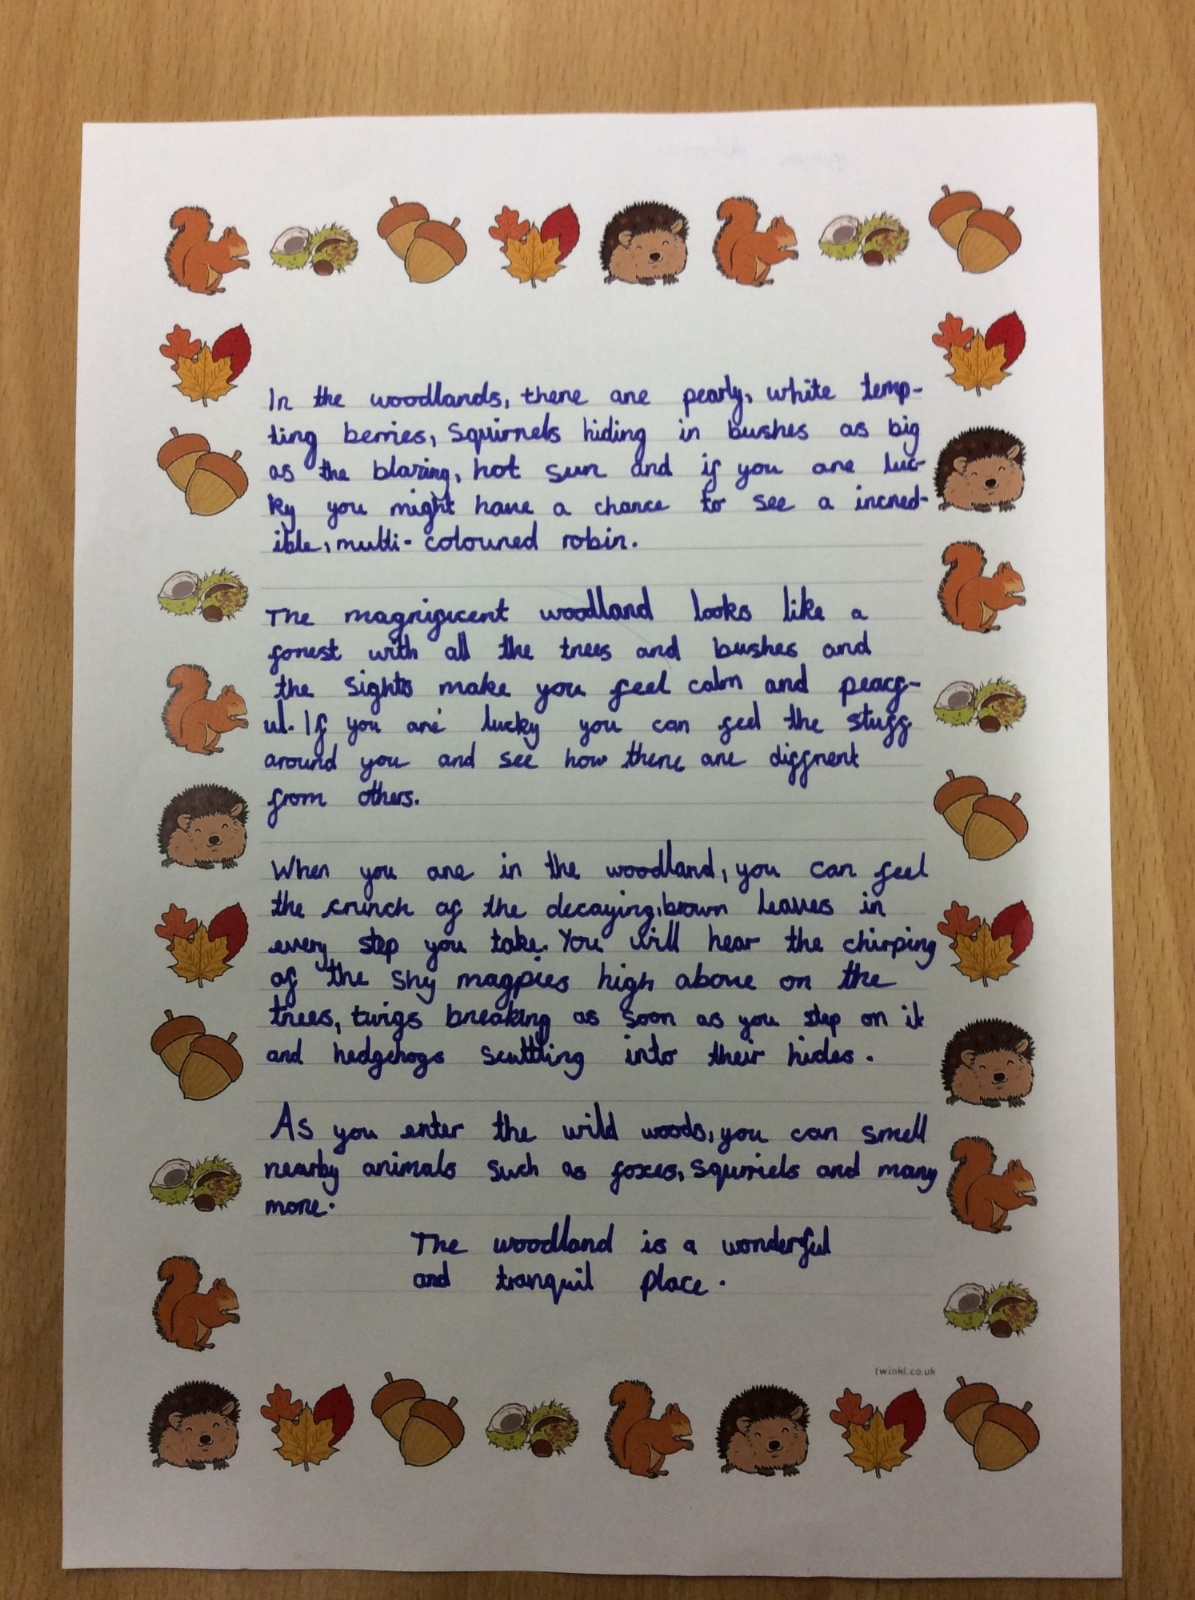 In the woodlands, there are pearly, white temp-
ting berries, squirrels hiding in bushes as big
as the blazing, hot sun and if you are luc-
ky you might have a chance to see a incred-
ible, multi-coloured robin.
The magnificent woodland looks like a
forest with all the trees and bushes and
the sights make you feel calm and peacf-
ul. If you are lucky you can feel the stuff
around you and see how there are diffrent
from others.
When you are in the woodland, you can feel
the crunch of the decaying, brown leaves in
every step you take. You will hear the chirping
of the shy magpies high above on the
trees, twigs breaking as soon as you step on it
and hedgehogs scuttling into their hides.
As you enter the wild woods, you can smell
nearby animals such as foxes, squrriels and many
more.
The woodland is a wonderful
and tranquil place.
twinkl.co.uk